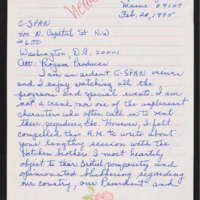 Maine 04107
Feb. 20, 1995
C-SPAN
400 N. Capitol St N.W
#650
Washington D.C. 20001
Att: Program Producer
I am an ardent C-SPAN viewer
and I enjoy watching all the
programs and special events. I am
not a crank nor one of the unpleasant
characters who often call in to vent
their prejudices etc. However, I felt
compelled this A.M. to write about
your lengthy session with the
Hitchen brothers. I most heartily
object to their British pomposity and
opinionated blubbering regarding
our country, our President and